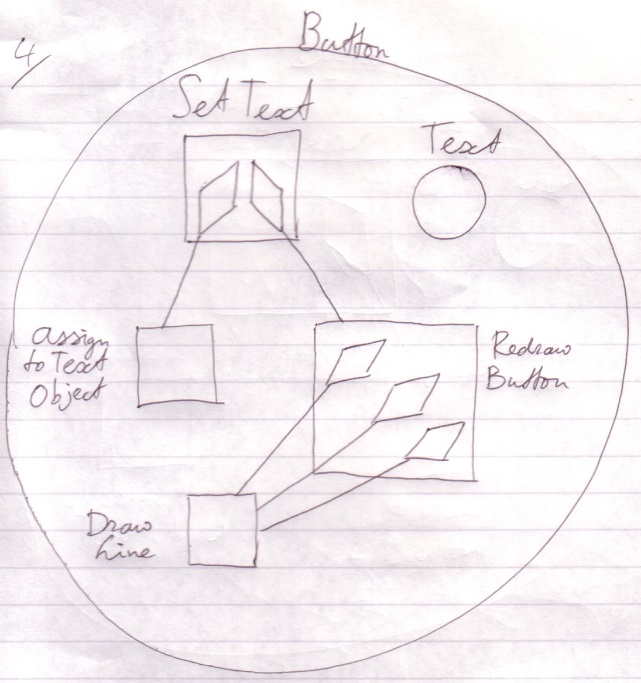 4/
Button
Set Text
Text
Assign
to Text
Object
Redraw
Button
Draw
Line